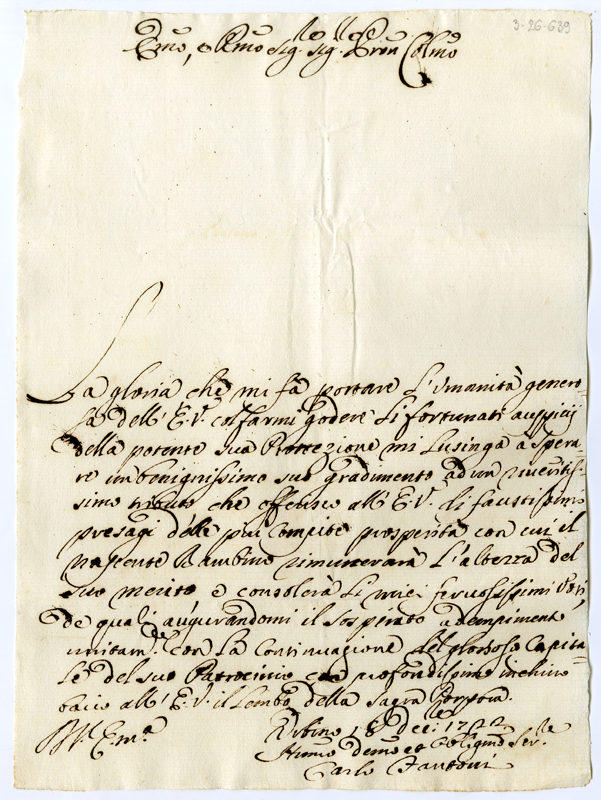 3-26-639
Emo, e Rmo Sig.re Sig.re Pron Colmo
La gloria che mi fà portare l'umanità genero
sa dell'E.V. col farmi godere li fortunati auspicij
della potente sua Protezione mi lusinga à spera-
re un benignissimo suo gradimento ad un riveritis-
simo tributo che offerisco all'E.V. di faustissimi
presagi delle più compite prosperità con cui il
nascente Bambino rimunerarà l'altezza del
suo merito e consolerà li miei fervosissimi Voti,
de quali augurandomi il sospirato adempimento
unitam.te con la continuazione del glorioso Capita-
le del suo Patrocinio con profondissimo inchino
bacio all'E.V. il lembo della sagra Porpora.
Urbino 18 Dec.e
Emª
Humo Devmo et Obligmo Ser.re
Carlo Fantoni